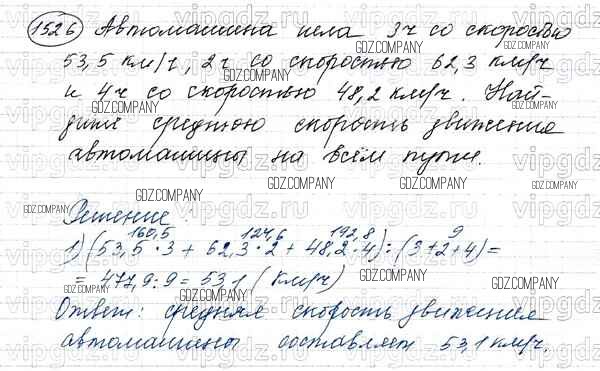 1526 Автомашина шла 3ч со скоростью
53,5 км/ч, 2ч со скоростью 62,3 км/ч
и 4ч со скоростью 48,2 км/ч. Най-
дите среднюю скорость движения
автомашины на всём пути.
Решение:
160,5 124,6 192,8 9
1) (53,5·3 + 62,3·2 + 48,2·4) : (3+2+4) =
= 477,9 : 9 = 53,1 (км/ч)
Ответ: средняя скорость движения
автомашины составляет 53,1 км/ч.
GDZ.COMPANY
vipgdz.ru